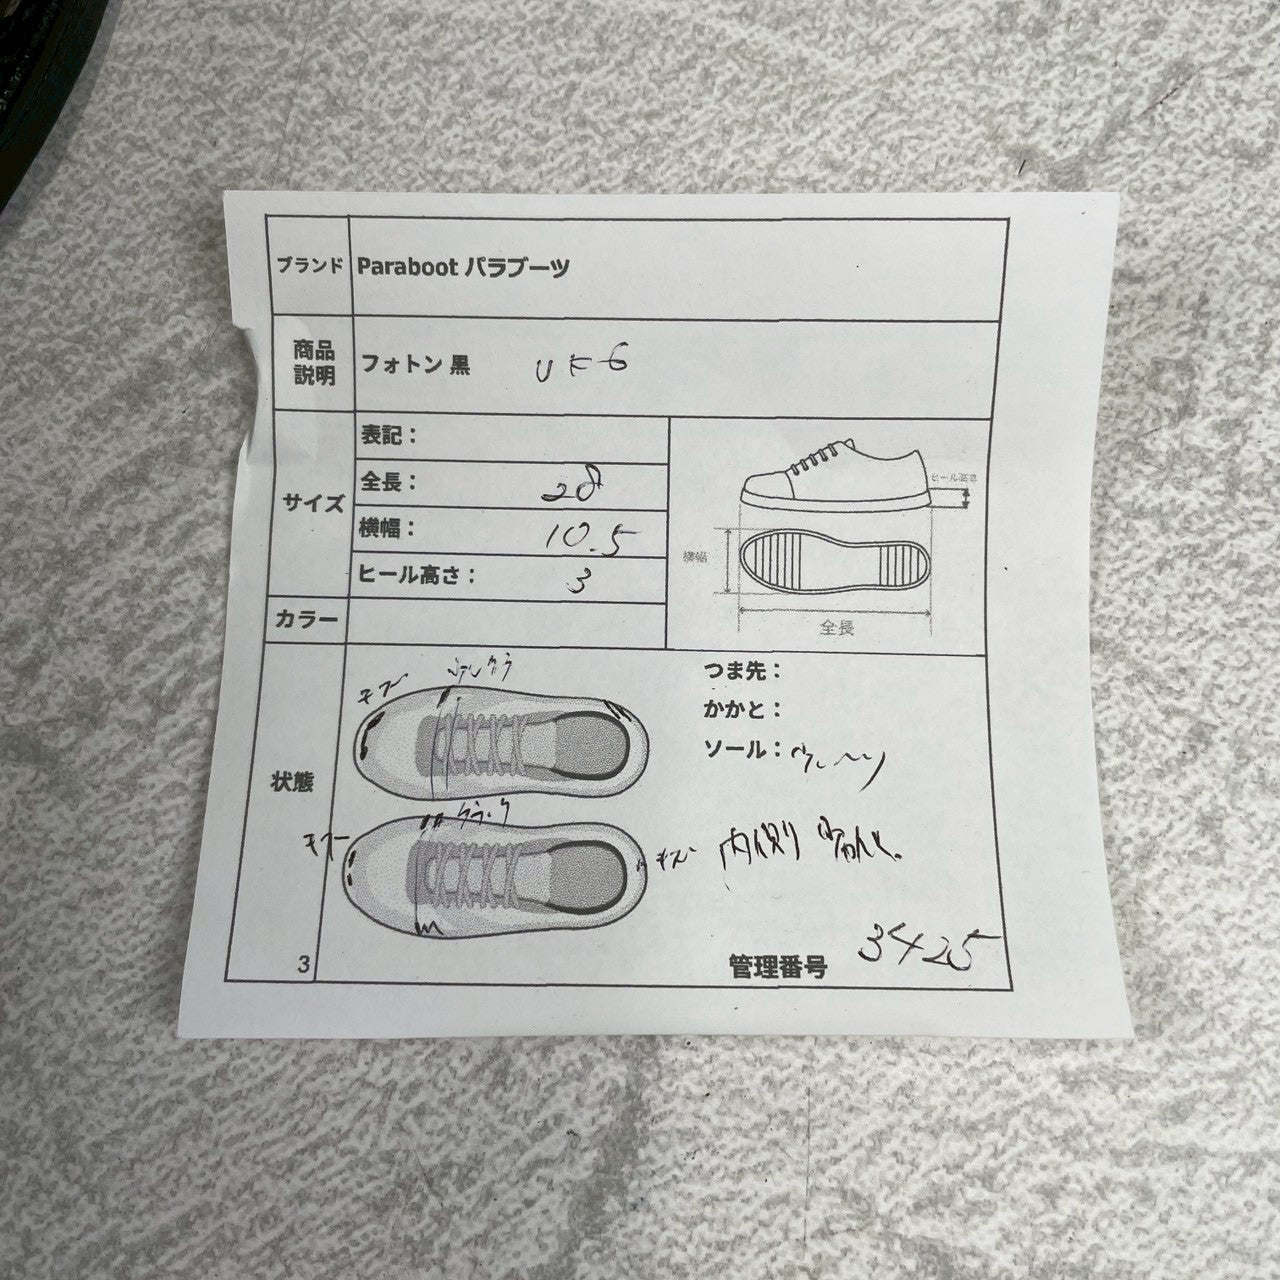 ブランド Paraboot パラブーツ
商品説明 フォトン 黒 UK6
サイズ
表記：
全長： 28
横幅： 10.5
ヒール高さ： 3
横幅
全長
カラー
状態
キズ
キズ クラック
キズ
つま先：
かかと：
ソール：
内側
3
管理番号 3425